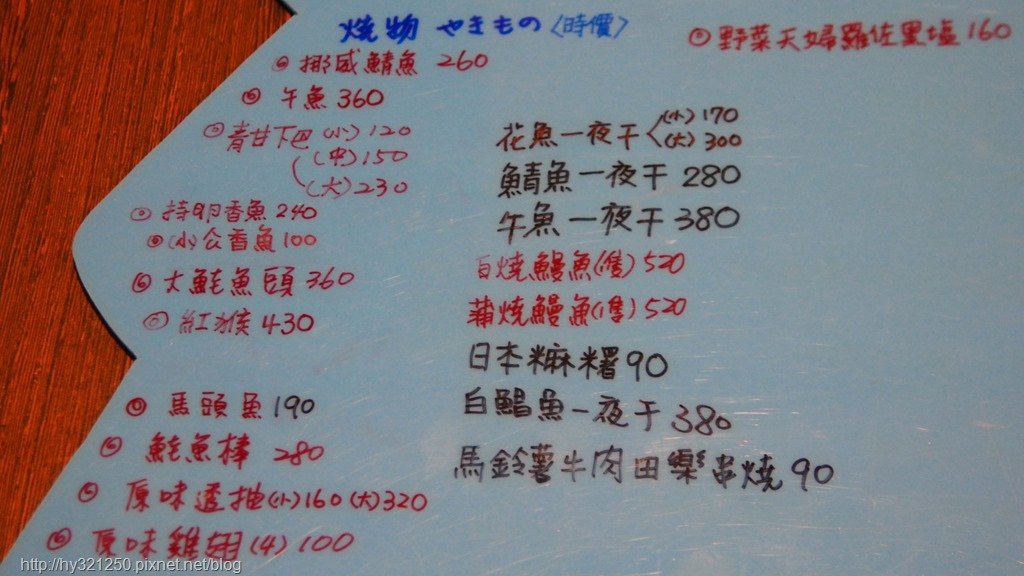 燒物 やきもの〈時價〉
挪威鯖魚 260
午魚 360
青甘下巴(小) 120
(中) 150
(大) 230
持卵香魚 240
(小)公香魚 100
大鮭魚頭 360
紅猴 430
馬頭魚 190
鮭魚棒 280
原味透抽(小)160 (大)320
原味雞翅(4) 100
野菜天婦羅佐黑塩 160
花魚一夜干 (小) 170
(大) 300
鯖魚一夜干 280
午魚一夜干 380
白燒鰻魚(1隻) 520
蒲燒鰻魚(1隻) 520
日本麻糬 90
白鯧魚一夜干 380
馬鈴薯牛肉田樂串燒 90
http://hy321250.pixnet.net/blog